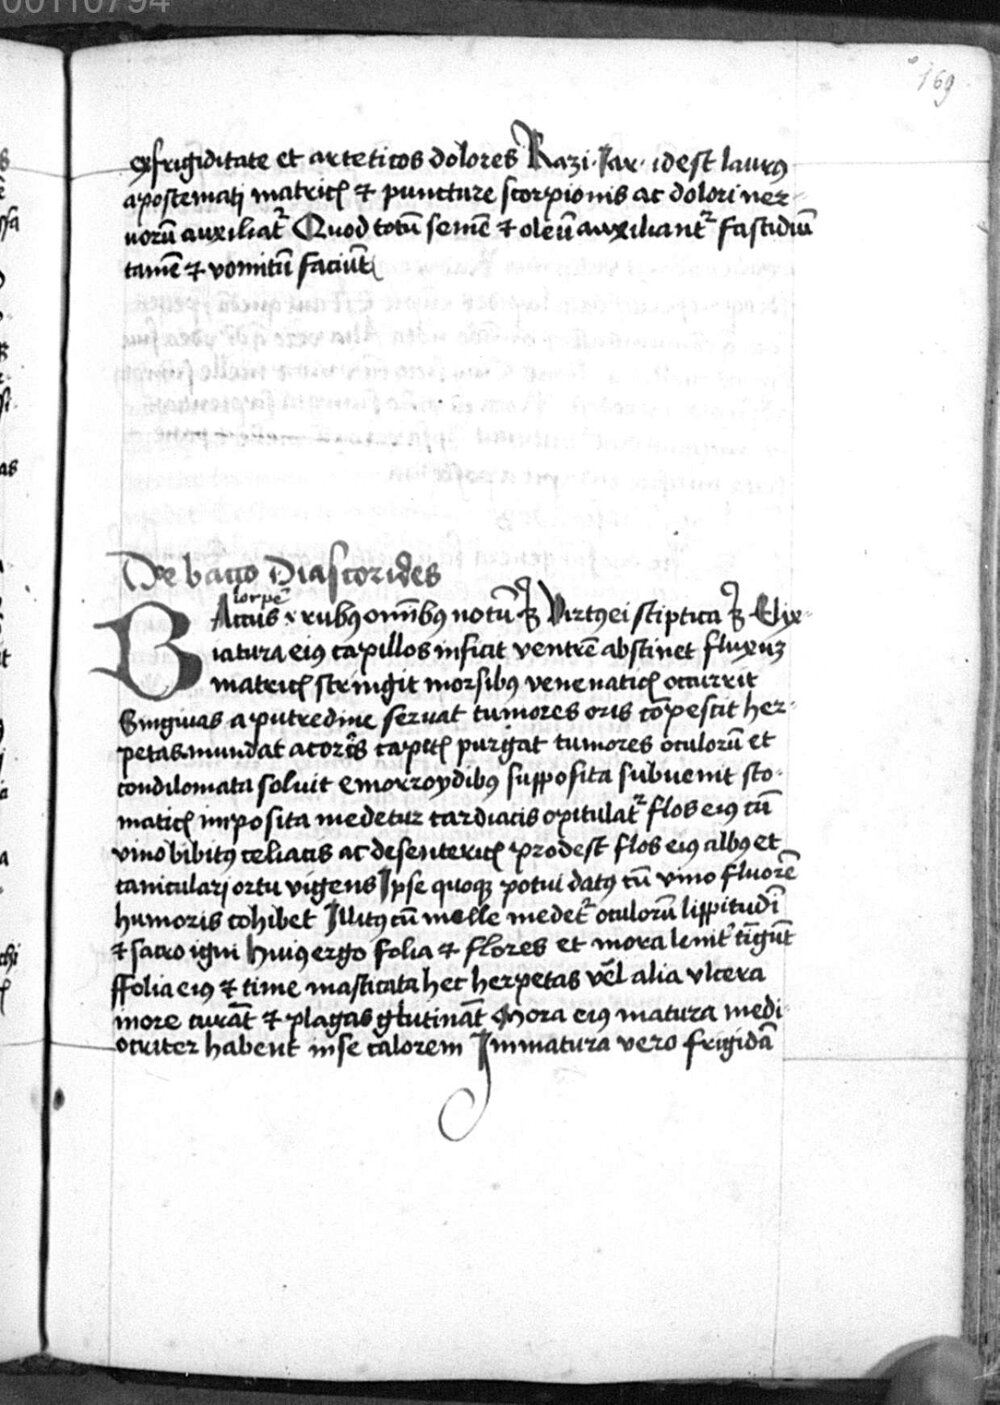 00110794
169
exfrigiditate et arteticos dolores Razi · Jar · idest laurꝰ
apostematj matricꝭ ⁊ puncture scorpionis ac dolori ner-
uorū auxiliat᷑ Quod totū semē ⁊ oleū auxiliant᷑ fastidiū
tamē ⁊ vomitū faciūt
De bacto Diascorides
Actus ⁊ rubꝰ omībꝰ notū Virtꝰ ei stiptica Elix-
iatura eiꝰ capillos inficit ventrē abstinet fluxuʒ
matricꝭ stringit morsibꝰ venenaticꝭ occurrit
Gingiuas a putredine seruat tumores oris cōpescit her-
petas mundat capitꝭ purgat tumores oculorū et
condilomata soluit emorroydibꝰ supposita subuenit sto-
maticꝭ imposita medetur cardiacis opitulat᷑ flos eiꝰ cū
vino bibitꝰ celiacis ac desentericꝭ prodest flos eiꝰ albꝰ et
canicularj ortu vigens Ipse quoqꝫ potui datꝰ cū vino fluorē
humoris cohibet Illitꝰ cū melle medet᷑ oculorū lippitudī
⁊ sacro igni huiꝰ ergo folia ⁊ flores et mora lenit᷑
ffolia eiꝰ ⁊ time masticata hec herpetas vel alia vlcera
more curāt ⁊ plagas glutināt Mora eiꝰ matura medi-
ocriter habent inse calorem Immatura vero frigidā